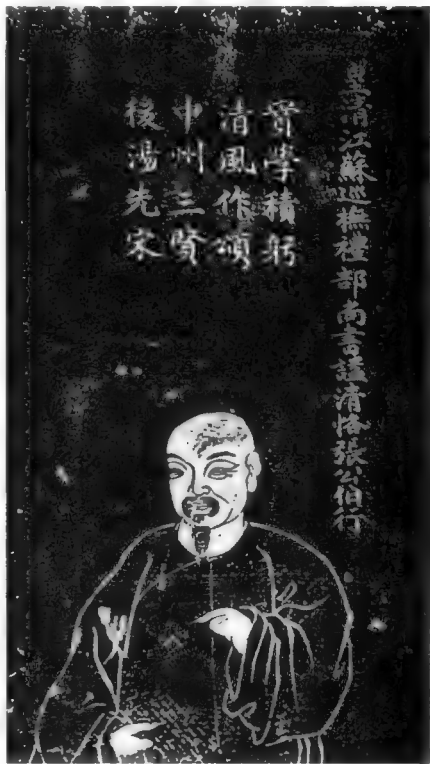 皇清江蘇巡撫禮部尚書謚清恪張公伯行
實學積躬
清風作頌
中州三賢
後湯先宋